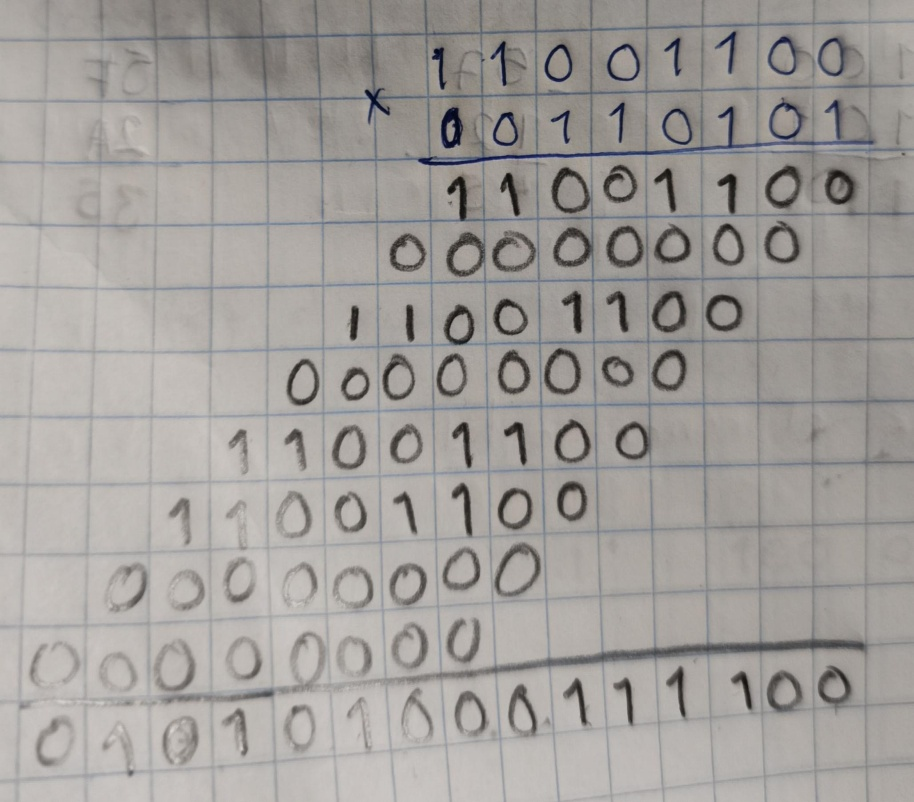 1 1 0 0 1 1 0 0
x 0 0 1 1 0 1 0 1
1 1 0 0 1 1 0 0
0 0 0 0 0 0 0 0
1 1 0 0 1 1 0 0
0 0 0 0 0 0 0 0
1 1 0 0 1 1 0 0
1 1 0 0 1 1 0 0
0 0 0 0 0 0 0 0
0 0 0 0 0 0 0 0
0 1 0 1 0 1 0 0 0 1 1 1 1 0 0